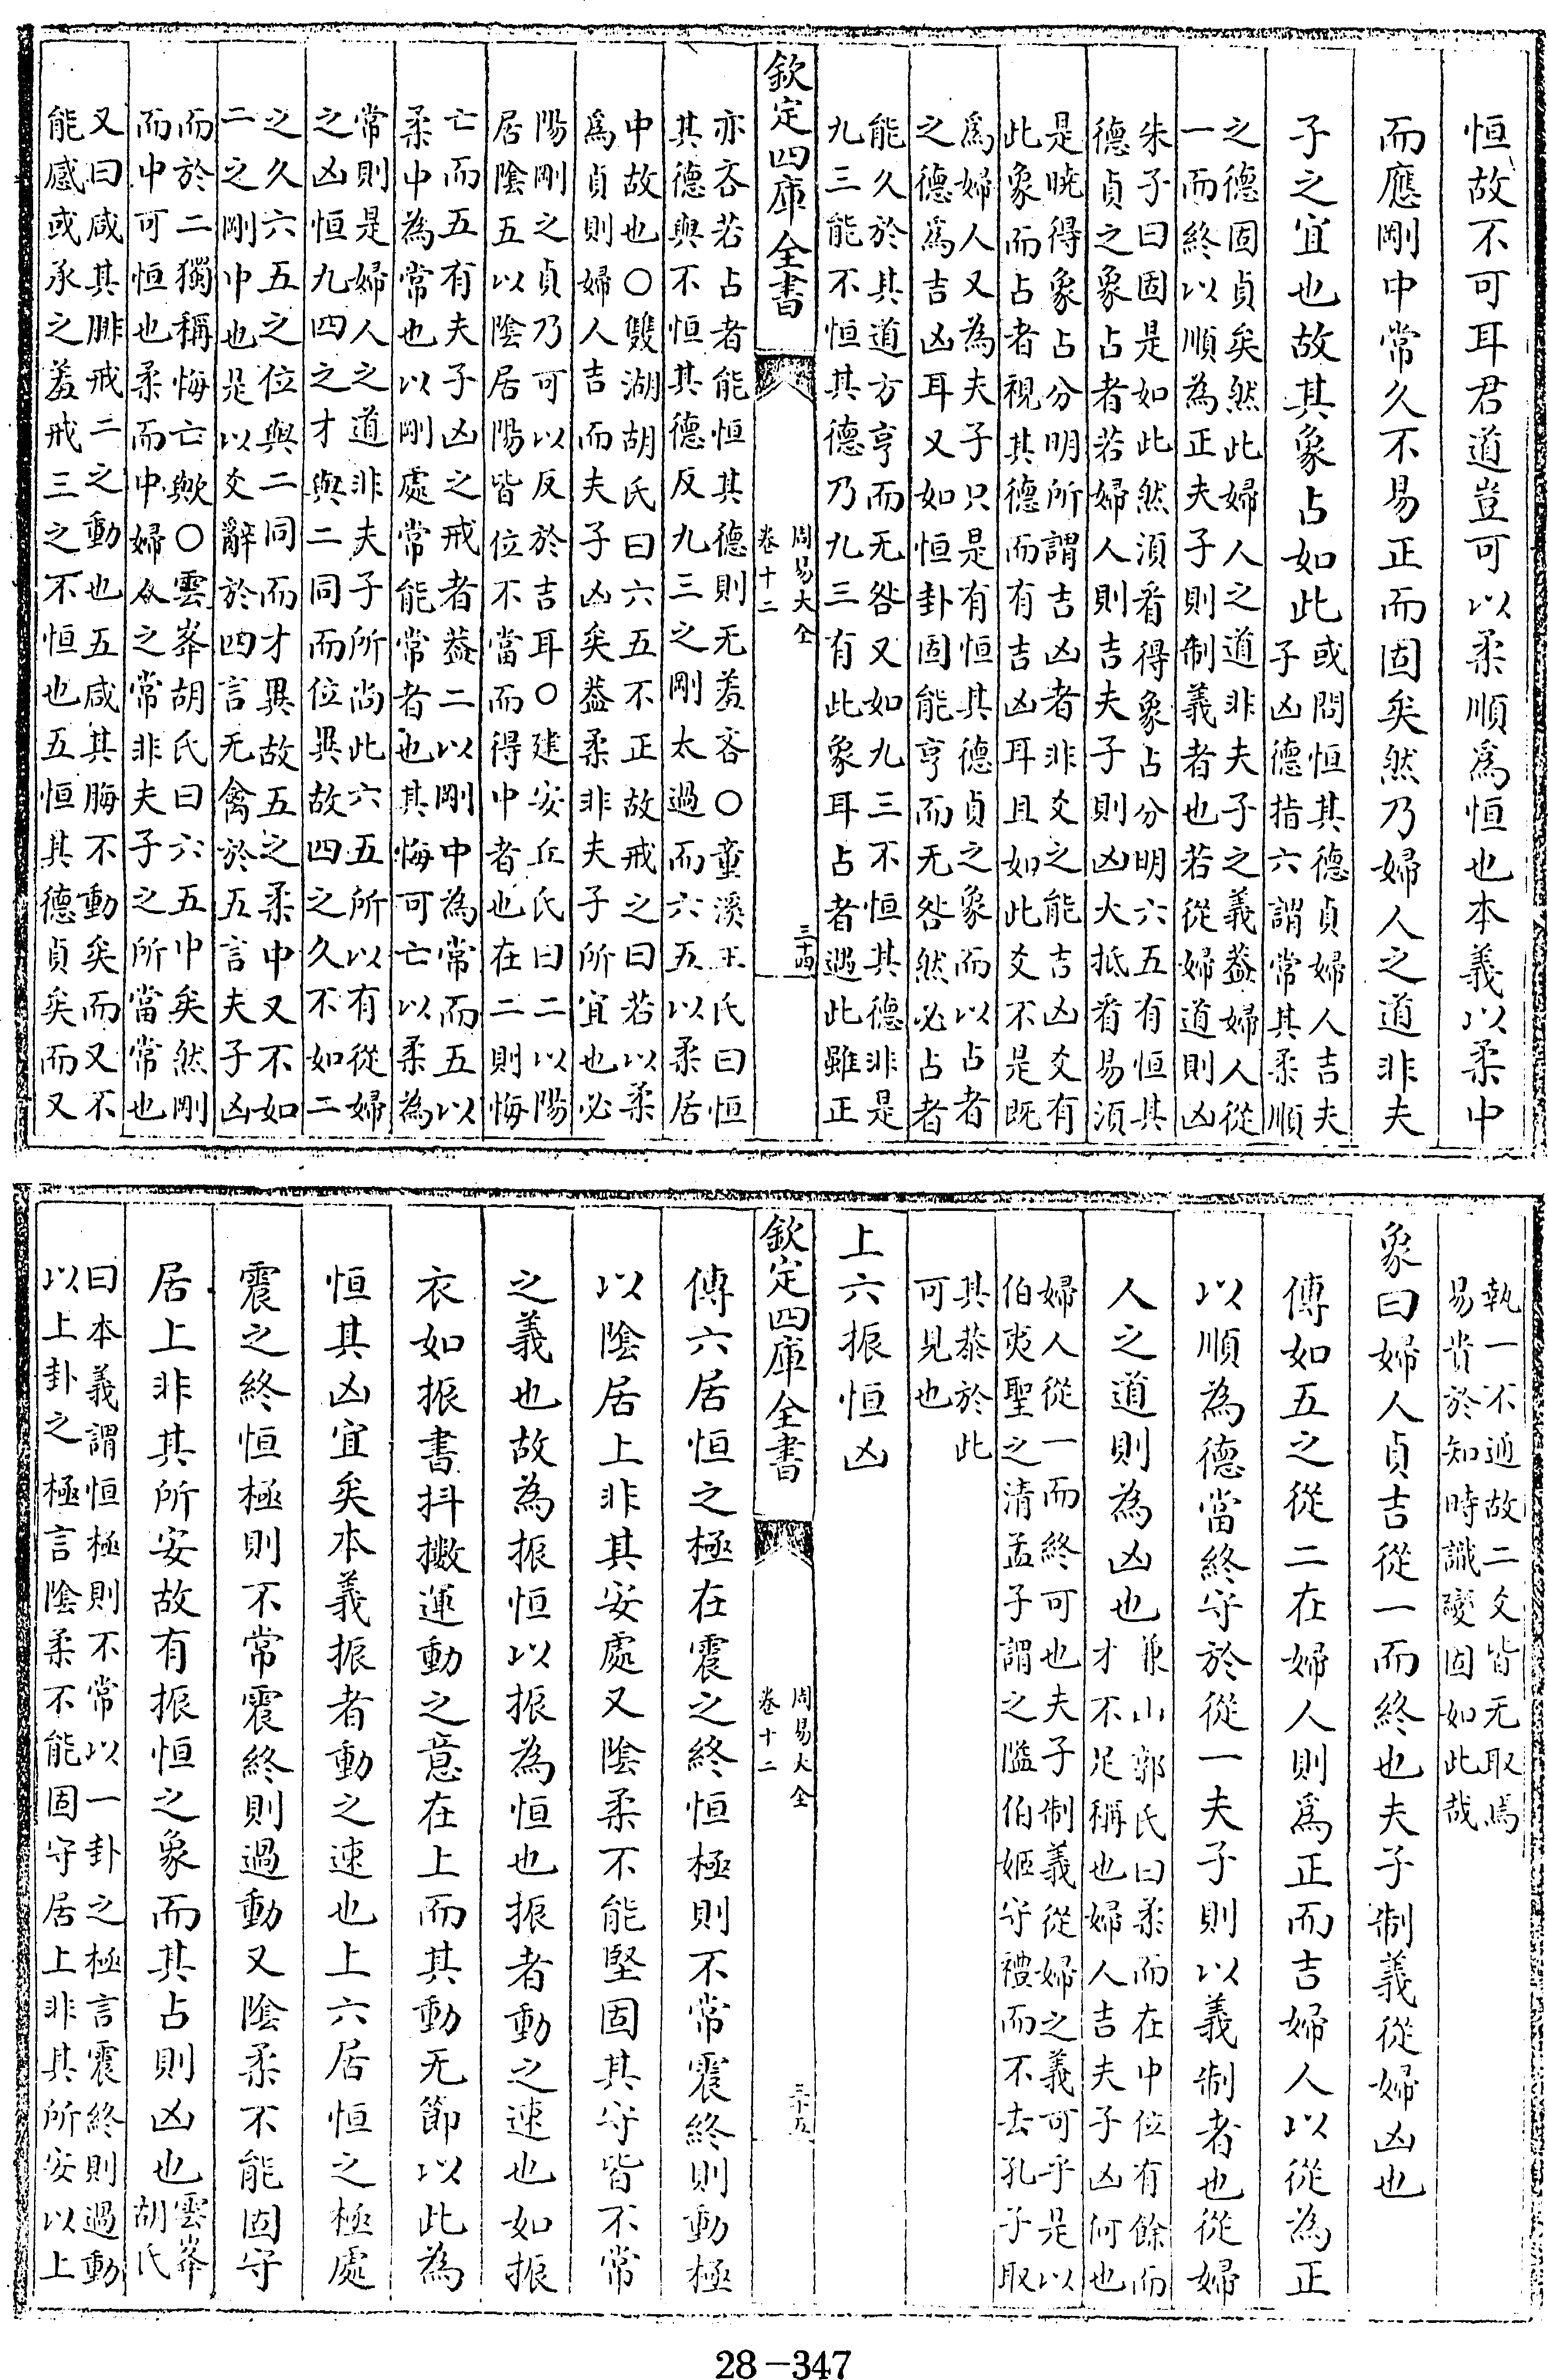 恒故不可耳君道豈可以柔順為恒也本義以柔中
而應剛中常久不易正而固矣然乃婦人之道非夫
子之宜也故其象占如此或問恒其德貞婦人吉夫
子凶德指六謂常其柔順
之德固貞矣然此婦人之道非夫子之義葢婦人從
一而終以順為正夫子則制義者也若從婦道則凶
朱子曰固是如此然須看得象占分明六五有恒其
德貞之象占者若婦人則吉夫子則凶大抵看易須
是曉得象占分明所謂吉凶者非爻之能吉凶爻有
此象而占者視其德而有吉凶耳且如此爻不是既
為婦人又為夫子只是有恒其德貞之象而以占者
之德為吉凶耳又如恒卦固能亨而无咎然必占者
能久於其道方亨而无咎又如九三不恒其德非是
九三能不恒其德乃九三有此象耳占者遇此雖正
欽定四庫全書
周易大全
卷十二
三十四
亦吝若占者能恒其德則无羞吝○童溪王氏曰恒
其德與不恒其德反九三之剛太過而六五以柔居
中故也○雙湖胡氏曰六五不正故戒之曰若以柔
為貞則婦人吉而夫子凶矣葢柔非夫子所宜也必
陽剛之貞乃可以反於吉耳○建安丘氏曰二以陽
居陰五以陰居陽皆位不當而得中者也在二則悔
亡而五有夫子凶之戒者葢二以剛中為常而五以
柔中為常也以剛處常能常者也其悔可亡以柔為
常則是婦人之道非夫子所尚此六五所以有從婦
之凶恒九四之才與二同而位異故四之久不如二
之久六五之位與二同而才異故五之柔中又不如
二之剛中也是以爻辭於四言无禽於五言夫子凶
而於二獨稱悔亡歟○雲峯胡氏曰六五中矣然剛
而中可恒也柔而中婦人之常非夫子之所當常也
又曰咸其腓戒二之動也五咸其脢不動矣而又不
能感或承之羞戒三之不恒也五恒其德貞矣而又
執一不通故二爻皆无取焉
易貴於知時識變固如此哉
象曰婦人貞吉從一而終也夫子制義從婦凶也
傳如五之從二在婦人則為正而吉婦人以從為正
以順為德當終守於從一夫子則以義制者也從婦
人之道則為凶也兼山郭氏曰柔而在中位有餘而
才不足稱也婦人吉夫子凶何也
婦人從一而終可也夫子制義從婦之義可乎是以
伯夷聖之清孟子謂之隘伯姬守禮而不去孔子取
其恭於此
可見也
上六振恒凶
欽定四庫全書
周易大全
卷十二
三十五
傳六居恒之極在震之終恒極則不常震終則動極
以陰居上非其安處又陰柔不能堅固其守皆不常
之義也故為振恒以振為恒也振者動之速也如振
衣如振書抖擻運動之意在上而其動无節以此為
恒其凶宜矣本義振者動之速也上六居恒之極處
震之終恒極則不常震終則過動又陰柔不能固守
居上非其所安故有振恒之象而其占則凶也雲峯
胡氏
曰本義謂恒極則不常以一卦之極言震終則過動
以上卦之極言陰柔不能固守居上非其所安以上
28-347